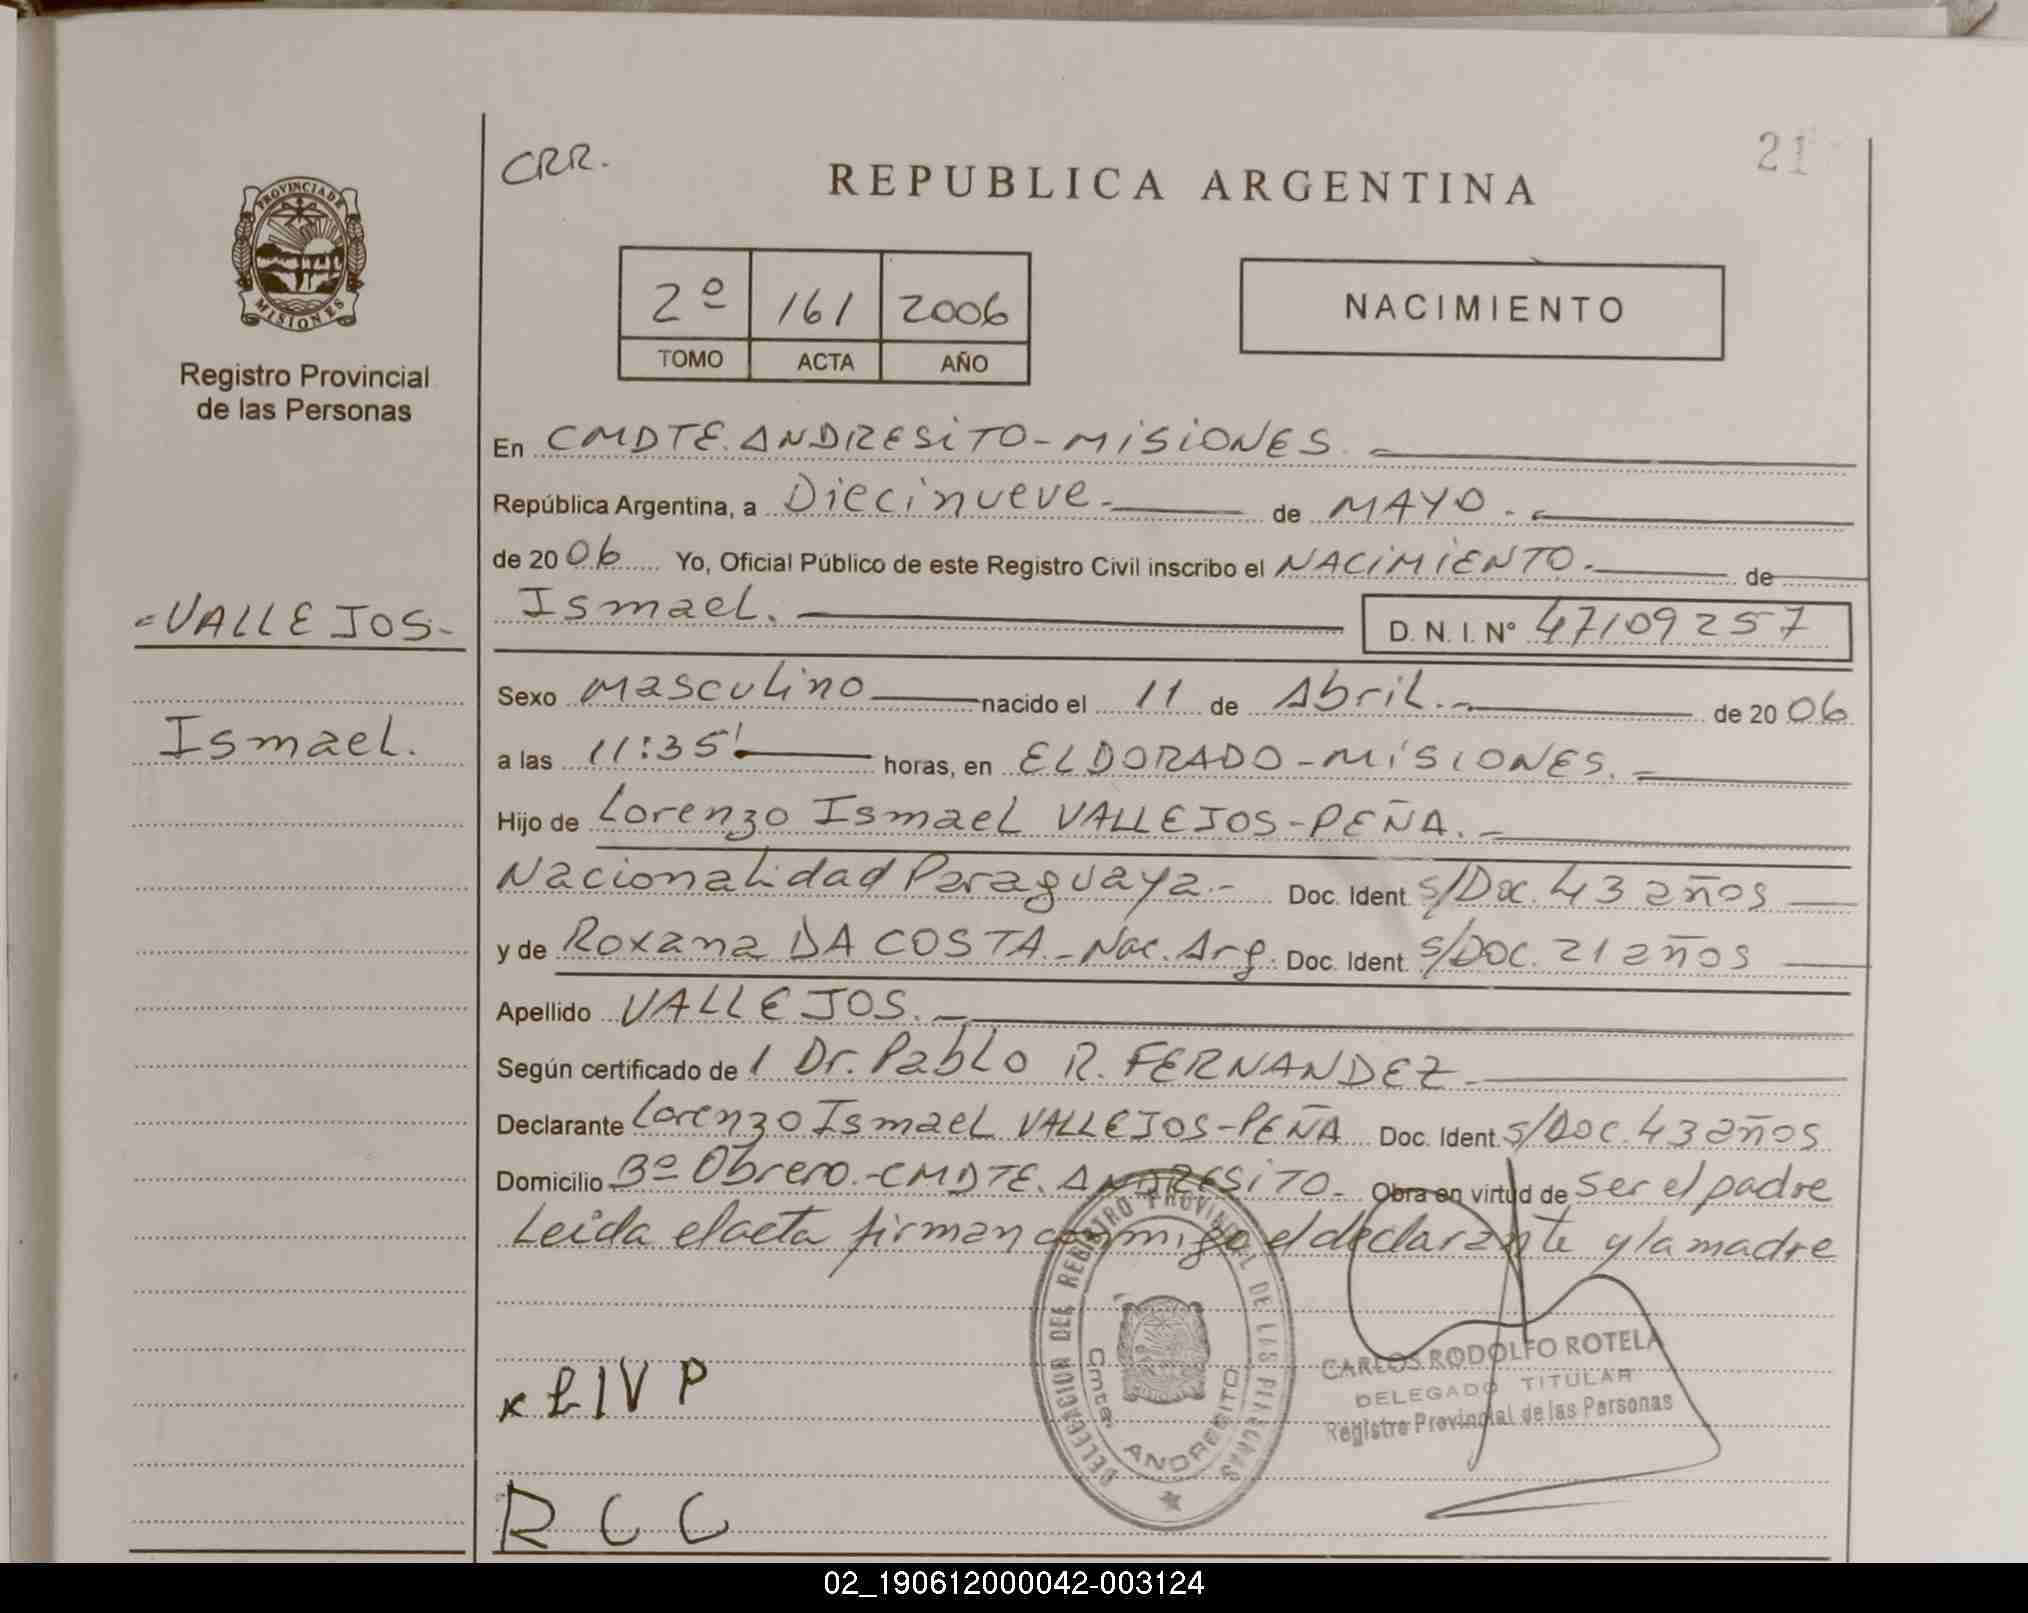 CRR.
21
REPUBLICA ARGENTINA
PROVINCIA DE
MISIONES
Registro Provincial
de las Personas
2º 161 2006
TOMO ACTA AÑO
NACIMIENTO
En CMDTE. ANDRESITO - MISIONES.
República Argentina, a Diecinueve.- de MAYO.-
de 20 06 Yo, Oficial Público de este Registro Civil inscribo el NACIMIENTO.- de
Ismael. D. N. I. Nº 47109257
=VALLEJOS-
Ismael.
Sexo Masculino nacido el 11 de Abril.- de 20 06
a las 11:35' horas, en ELDORADO - MISIONES.
Hijo de Lorenzo Ismael VALLEJOS-PEÑA.-
Nacionalidad Paraguaya.- Doc. Ident. s/Doc. 43 años
y de Roxana DA COSTA.- Nac. Arg. Doc. Ident. s/DOC. 21 años
Apellido VALLEJOS.-
Según certificado de 1 Dr. Pablo R. FERNANDEZ.
Declarante Lorenzo Ismael VALLEJOS-PEÑA Doc. Ident. s/Doc. 43 años
Domicilio Bº Obrero.-CMDTE. ANDRESITO.- Obra en virtud de ser el padre
Leida el acta firman conmigo el declarante y la madre
DELEGACION DEL REGISTRO PROVINCIAL DE LAS PERSONAS
Cmte. ANDRESITO
CARLOS RODOLFO ROTELA
DELEGADO TITULAR
Registro Provincial de las Personas
x LIVP
RCC
02_190612000042-003124